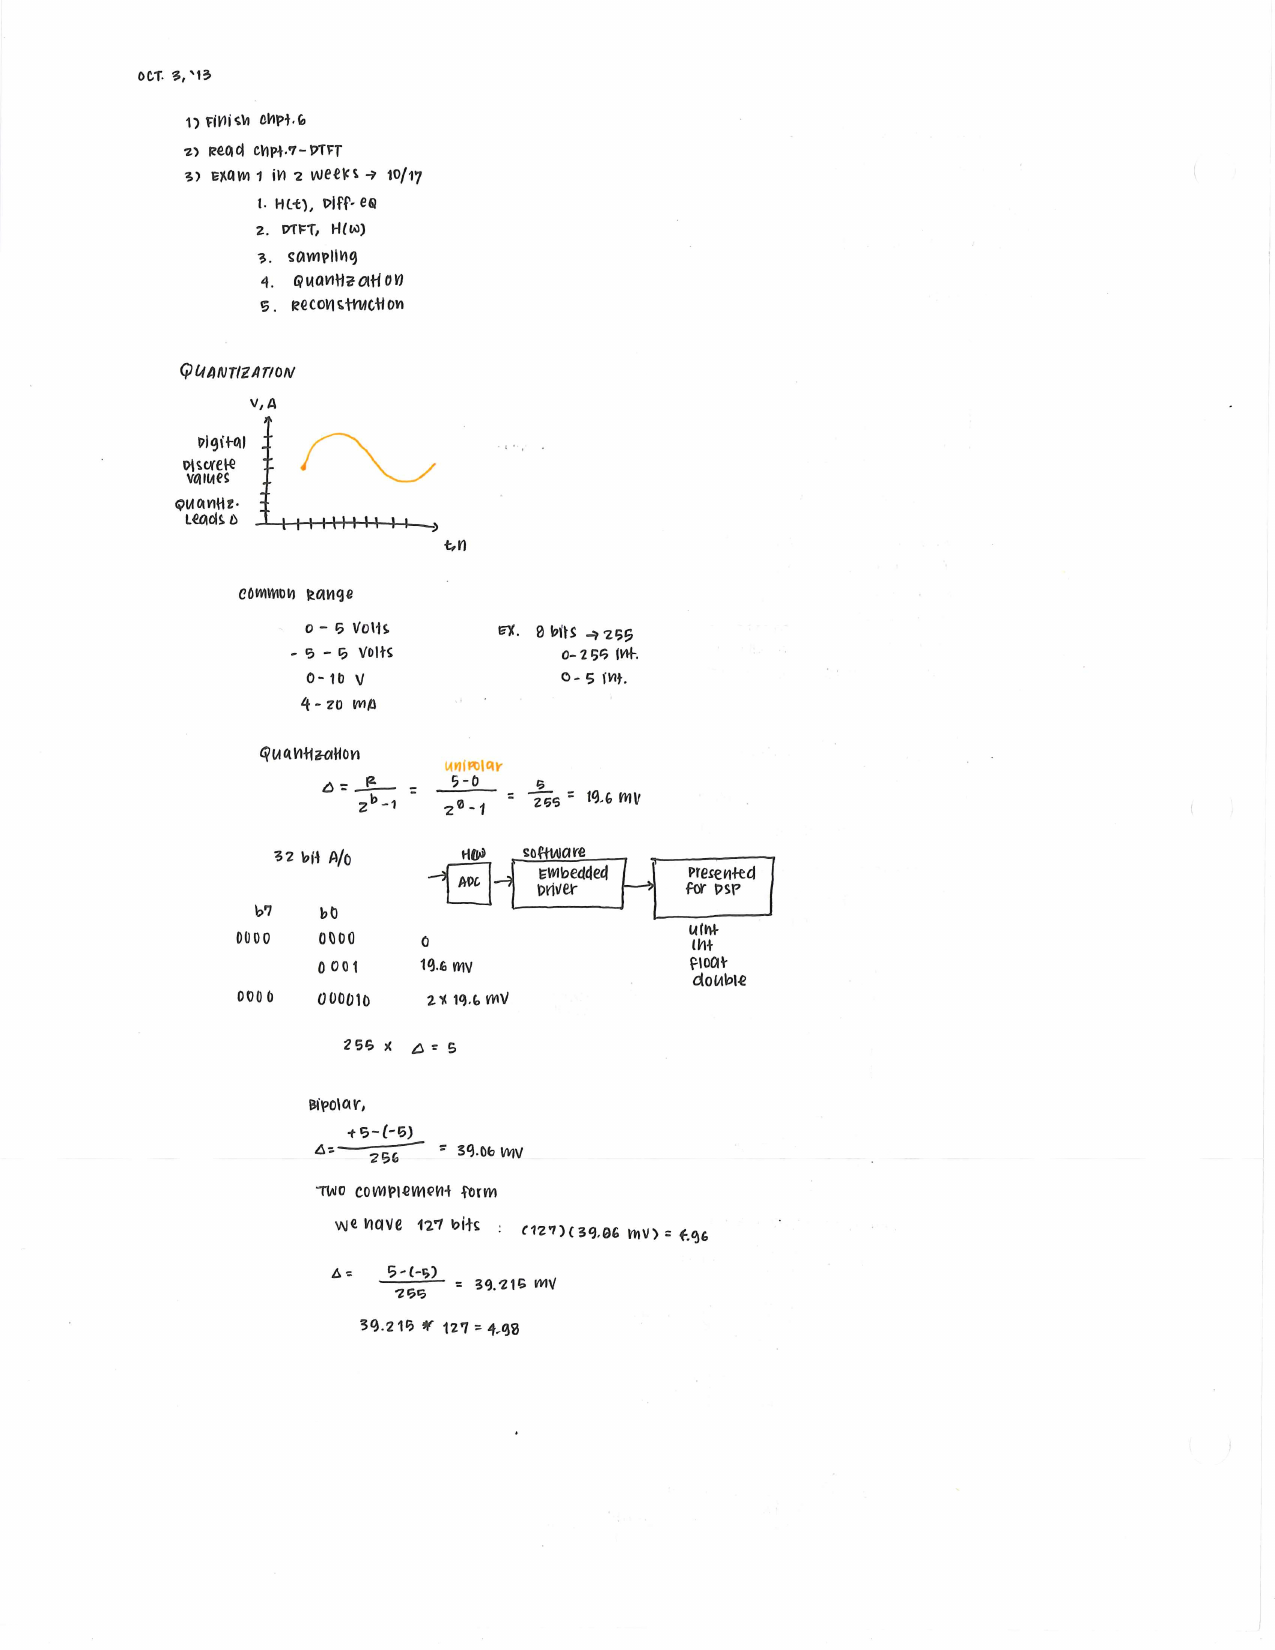 OCT. 3, '13
1) Finish chpt.6
2) Read chpt.7-DTFT
3) Exam 1 in 2 weeks → 10/17
1. H(t), Diff-eq
2. DTFT, H(ω)
3. sampling
4. Quantization
5. Reconstruction
QUANTIZATION
V, A
Digital
Discrete
values
Quantiz.
Leads Δ
t,n
common Range
0 - 5 Volts
EX. 8 bits → 255
- 5 - 5 Volts
0-255 int.
0-10 V
0-5 int.
4-20 mA
Quantization
unipolar
Δ = R / 2^b -1 = 5-0 / 2^8 -1 = 5 / 255 = 19.6 mV
32 bit A/D
H/W
software
ADC
Embedded
Driver
Presented
for DSP
b7 b0
uint
int
float
double
0000 0000 0
0001 19.6 mV
0000 000010 2 x 19.6 mV
255 x Δ = 5
Bipolar,
Δ = +5-(-5) / 256 = 39.06 mV
Two complement form
we have 127 bits : (127)(39.06 mV) = 4.96
Δ = 5-(-5) / 255 = 39.215 mV
39.215 * 127 = 4.98